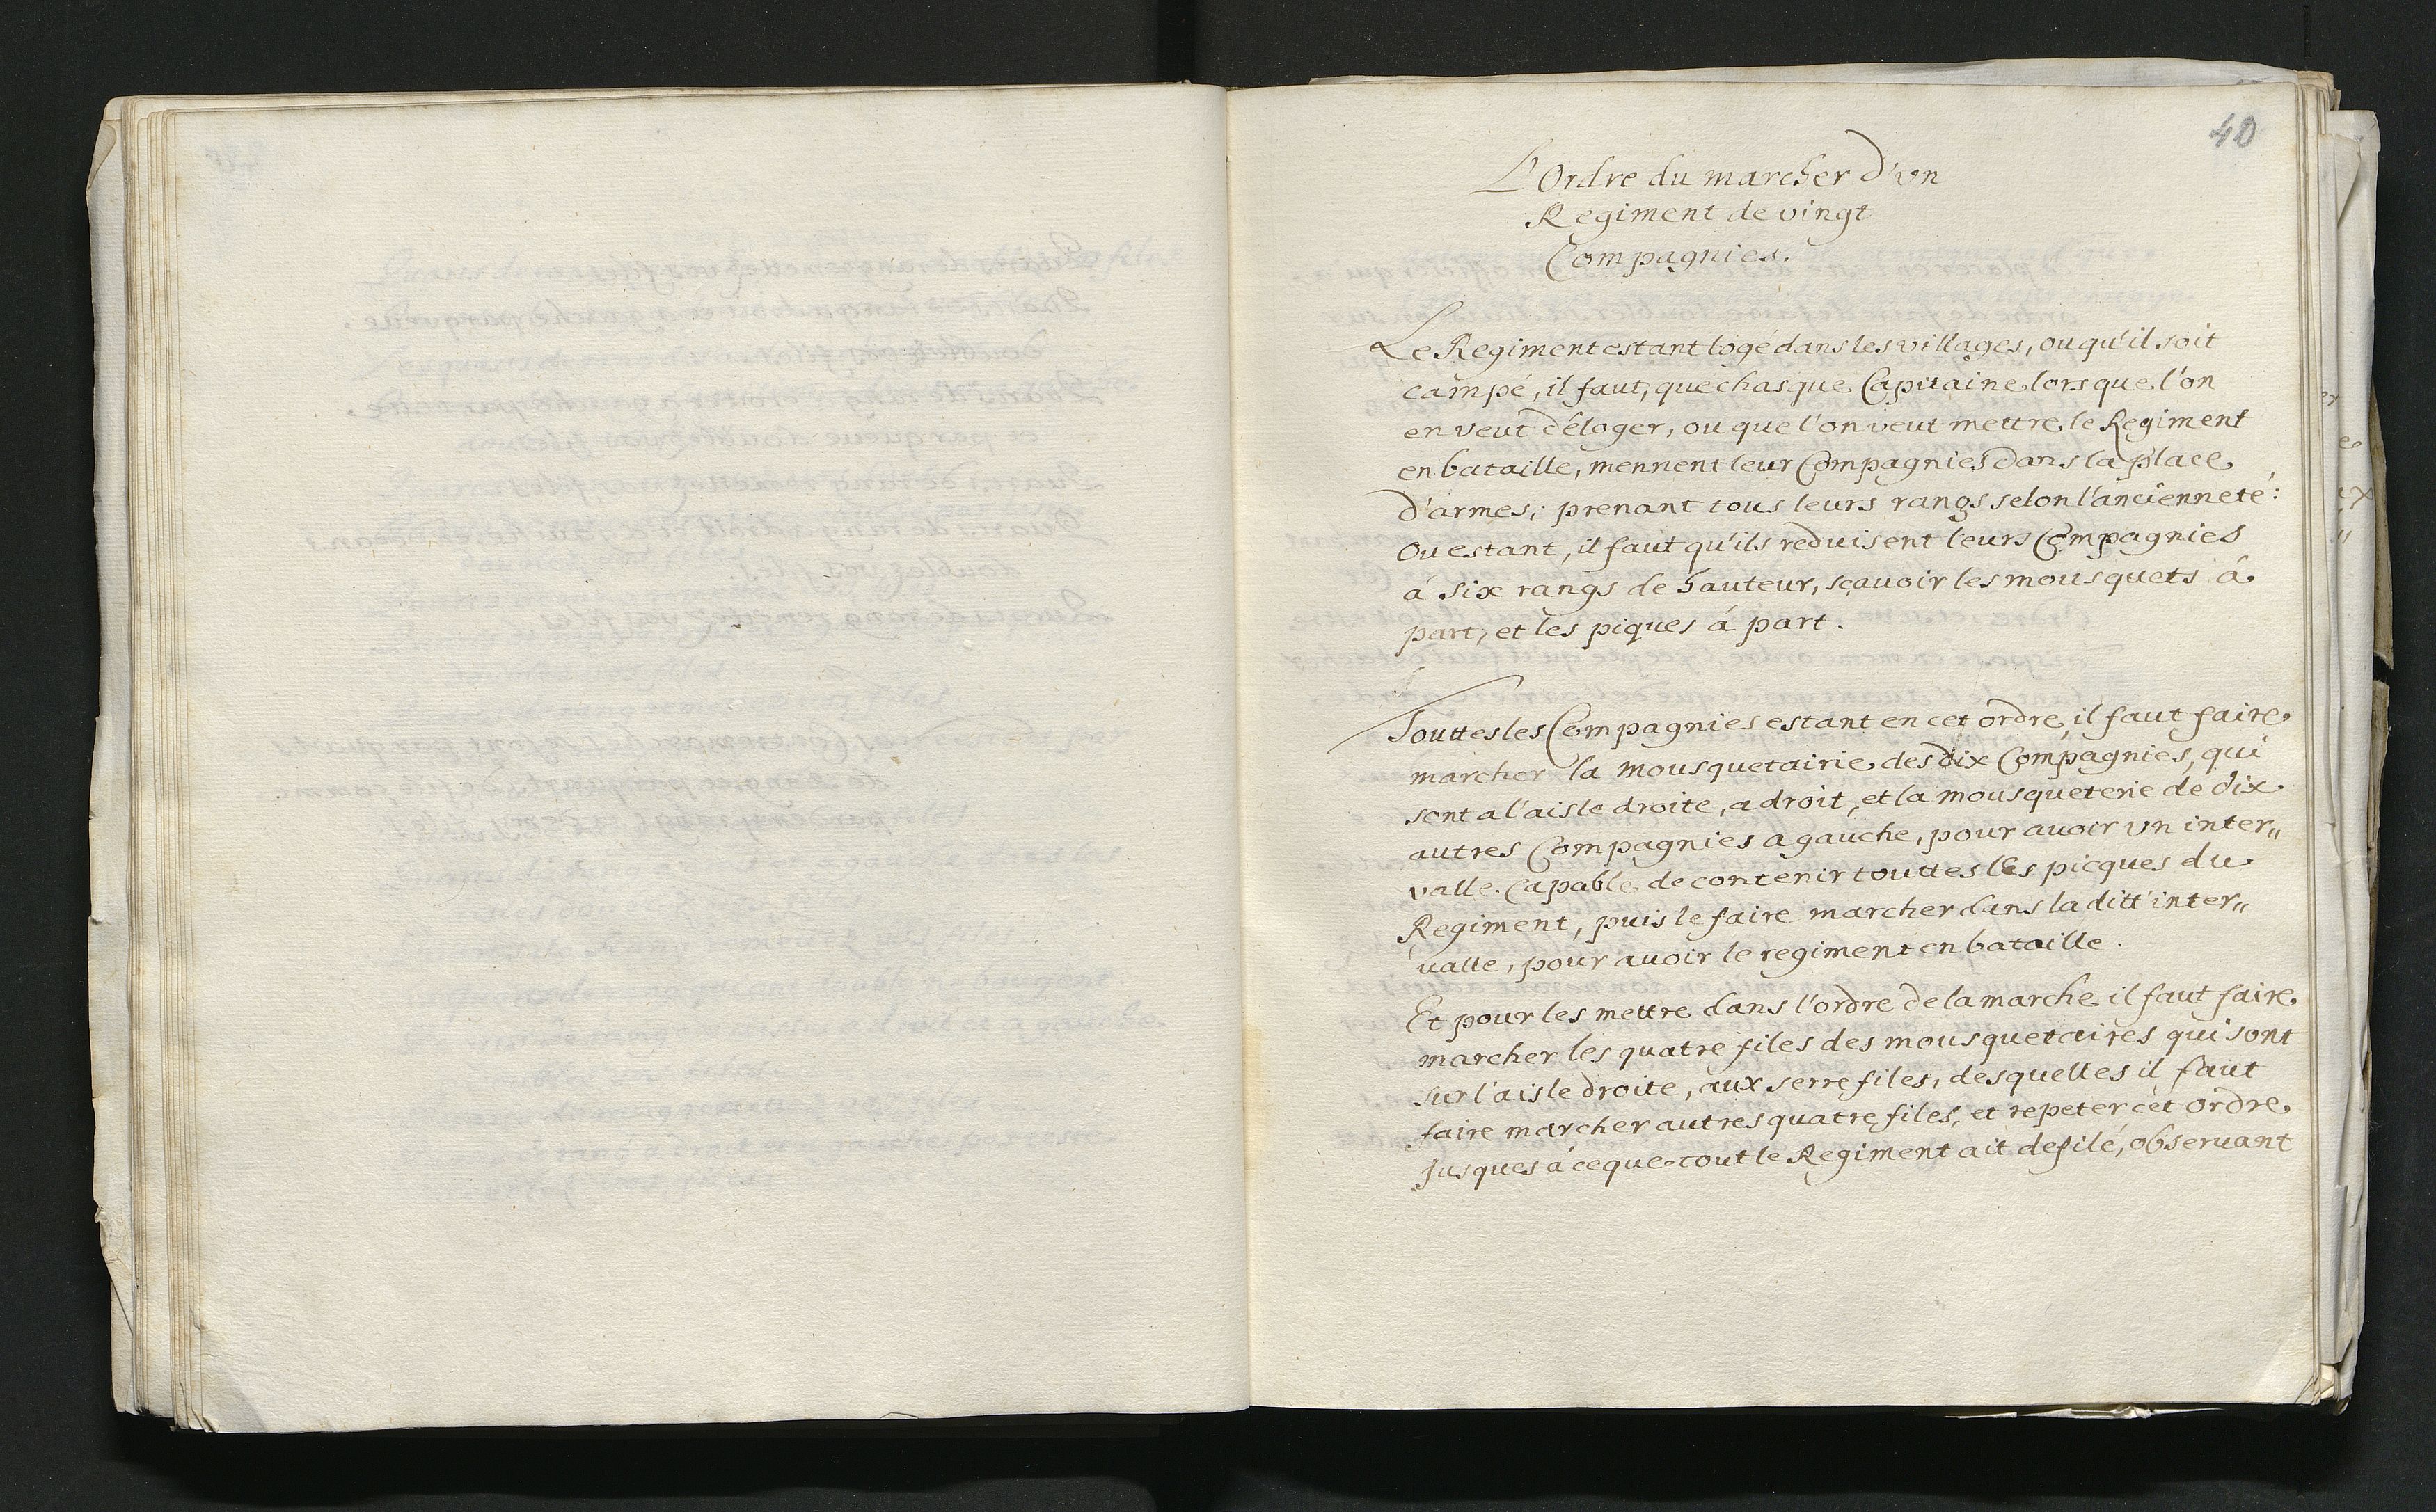 40
L'Ordre du marcher d'vn
Regiment de vingt
Compagnies.
Le Regiment estant logé dans les villages, ou qu'il soit
campé, il faut, que chasque Capitaine lors que l'on
en veut déloger, ou que l'on veut mettre le Regiment
en bataille, mennent leur Compagnies dans la place
d'armes; prenant tous leurs rangs selon l'ancienneté:
Ou estant, il faut qu'ils reduisent leurs Compagnies
á six rangs de hauteur, sçauoir les mousquets á
part, et les piques á part.
Touttes les Compagnies estant en cet ordre, il faut faire
marcher la mousquetairie des dix Compagnies, qui
sont a l'aisle droite, a droit, et la mousqueterie de dix
autres Compagnies a gauche, pour auoir vn inter„
valle. Capable de contenir touttes les picques du
Regiment, puis le faire marcher dans la ditt' inter„
ualle, pour auoir le regiment en bataille.
Et pour les mettre dans l'ordre de la marche il faut faire
marcher les quatre files des mousquetaires qui sont
sur l'aisle droite, aux serre files, desquelles il faut
faire marcher autres quatre files, et repeter cet ordre
jusques á ce que tout le Regiment ait defilé, obseruant